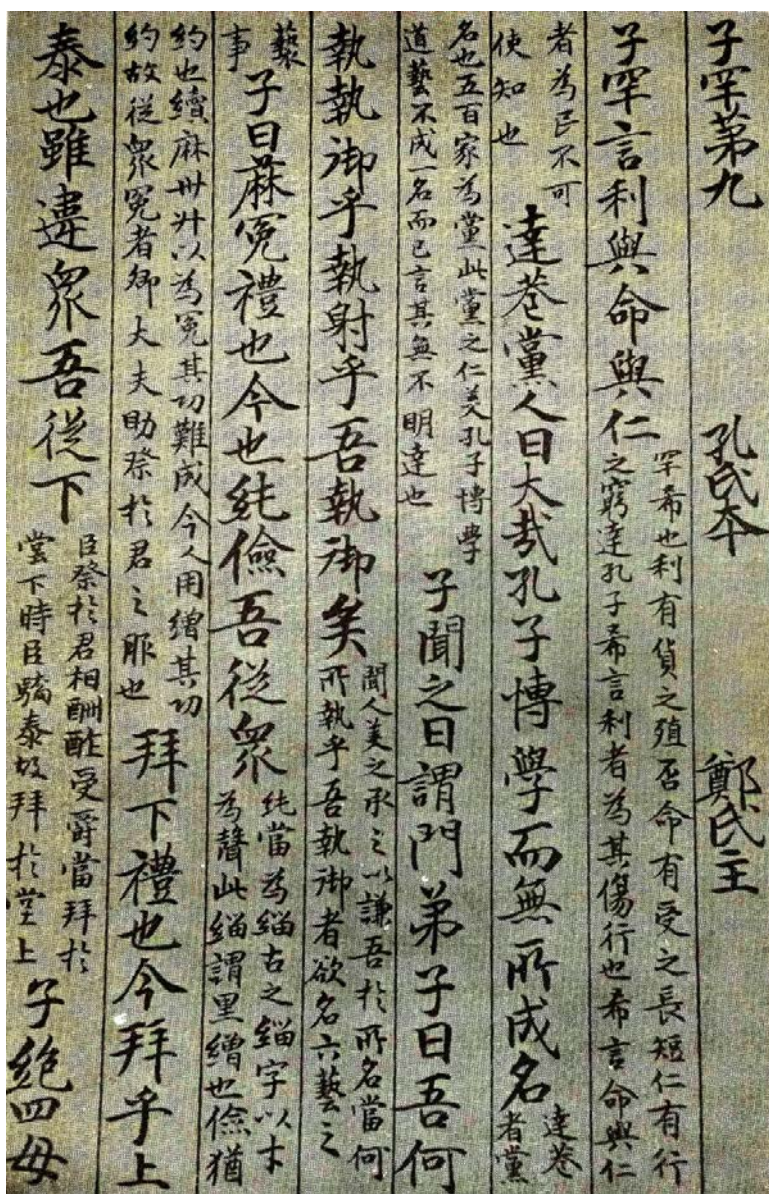 子罕第九 孔氏本 鄭氏主
子罕言利與命與仁 罕希也利有貨之殖否命有受之長短仁有行
之窮達孔子希言利者為其傷行也希言命與仁
者為民不可
使知也
達巷黨人曰大哉孔子博學而無所成名 達巷
者黨
名也五百家為黨此黨之仁美孔子博學
道藝不成一名而已言其無不明達也
子聞之曰謂門弟子曰吾何
執執御乎執射乎吾執御矣 聞人美之承之以謙吾於所名當何
所執乎吾執御者欲名六藝之
藝
事
子曰麻冕禮也今也純儉吾從眾 純當為緇古之緇字以才
為聲此緇謂黑繒也儉猶
約也績麻卅升以為冕其功難成今人用繒其功
約故從眾冕者卿大夫助祭於君之服也
拜下禮也今拜乎上
泰也雖違眾吾從下 臣祭於君相酬酢受爵當拜於
堂下時臣驕泰故拜於堂上
子絕四毋